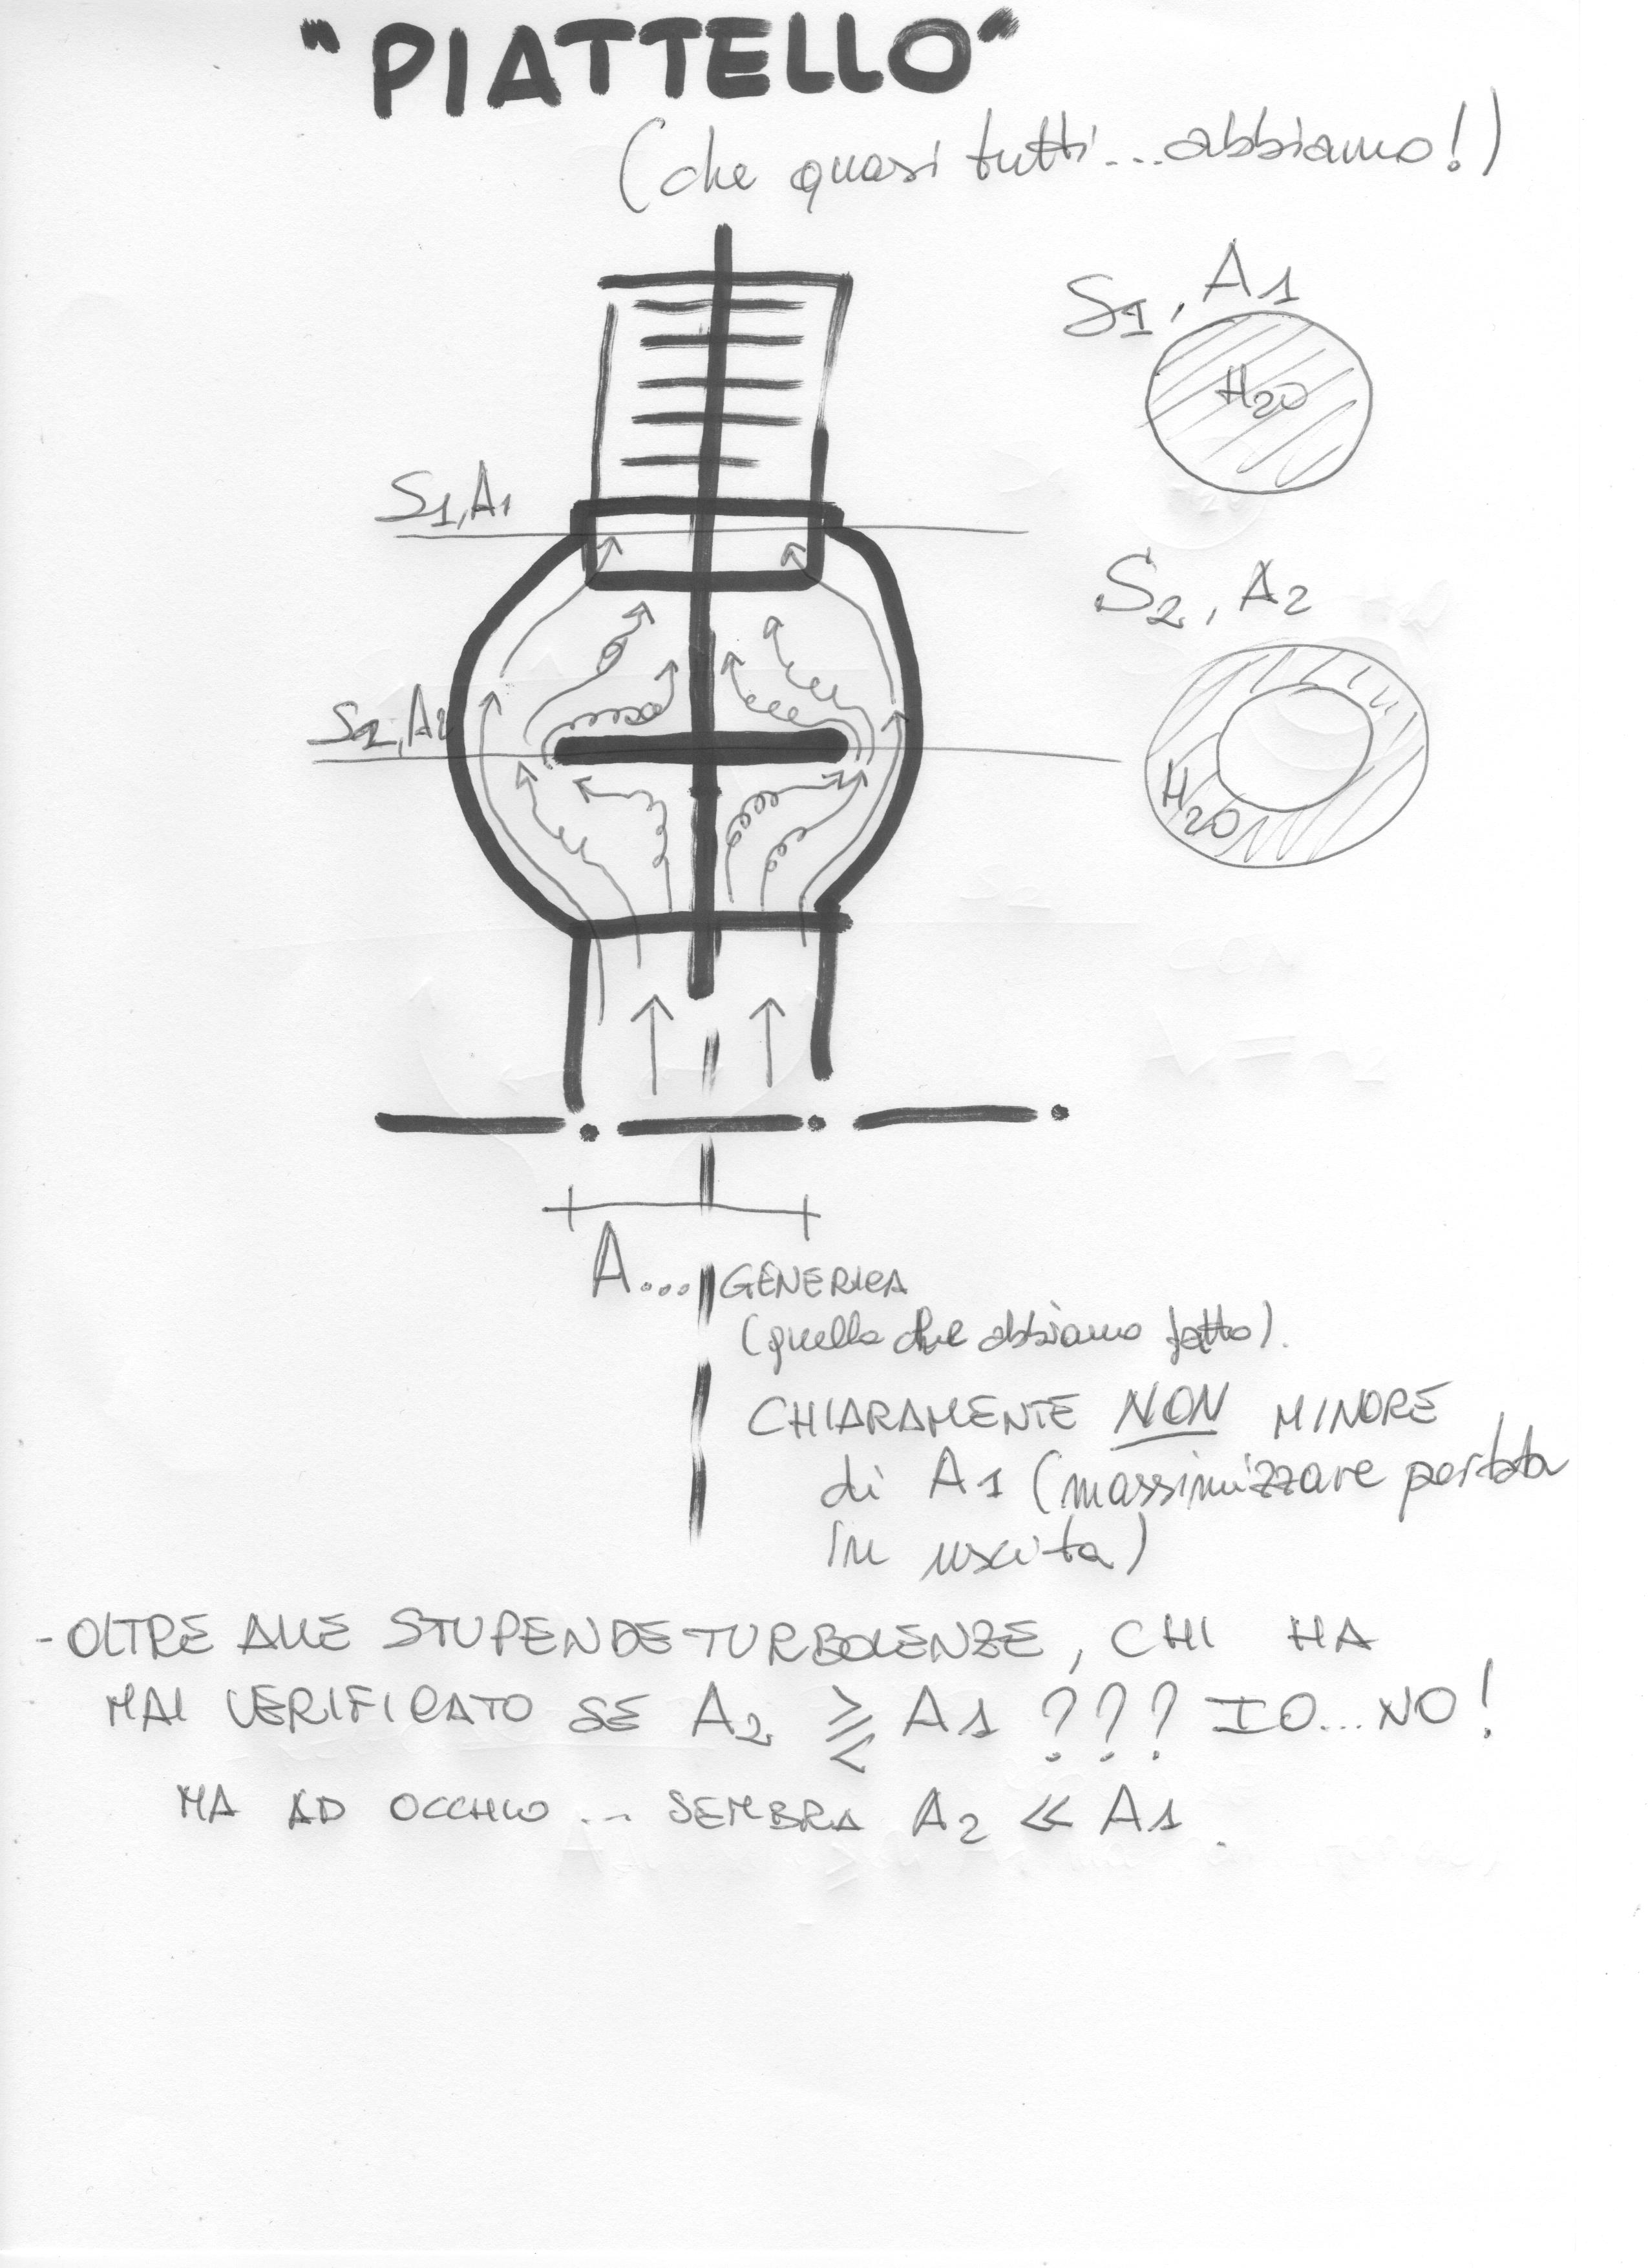 "PIATTELLO"
(che quasi tutti...abbiamo!)
S1, A1
H2O
S1,A1
S2, A2
S2,A2
H2O
A... GENERICA
(quello che abbiamo fatto).
CHIARAMENTE NON MINORE
di A1 (massimizzare portata
in uscita)
- OLTRE ALLE STUPENDE TURBOLENZE, CHI HA
MAI VERIFICATO SE A2 ⪌ A1 ??? IO...NO!
MA AD OCCHIO ... SEMBRA A2 << A1.